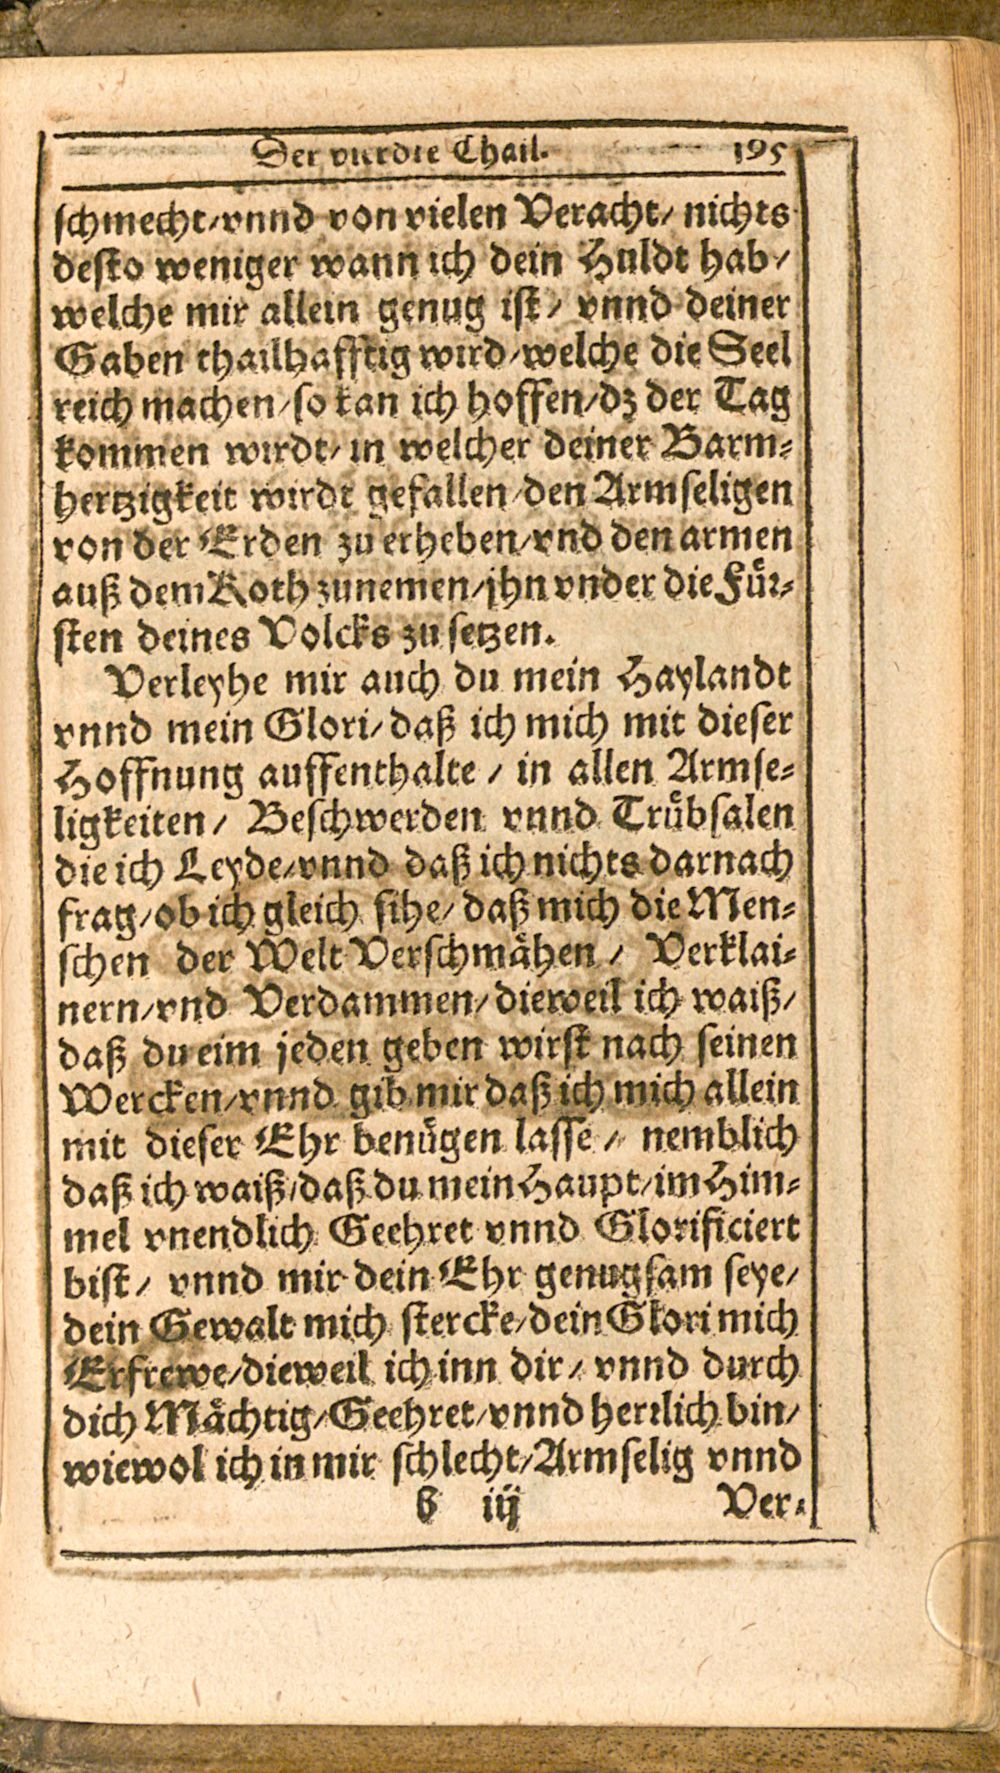 Der vierdte Thail. 195
schmecht/vnnd von vielen Veracht/ nichts
desto weniger wann ich dein Huldt hab/
welche mir allein genug ist/ vnnd deiner
Gaben thailhafftig wird/welche die Seel
reich machen/so kan ich hoffen/dz der Tag
kommen wirdt/ in welcher deiner Barm-
hertzigkeit wirdt gefallen/den Armseligen
von der Erden zu erheben/vnd den armen
auß dem Koth zunemen/jhn vnder die Für-
sten deines Volcks zu setzen.
Verleyhe mir auch du mein Haylandt
vnnd mein Glori/ daß ich mich mit dieser
Hoffnung auffenthalte / in allen Armse-
ligkeiten/ Beschwerden vnnd Trübsalen
die ich Leyde/vnnd daß ich nichts darnach
frag/ob ich gleich sihe/ daß mich die Men-
schen der Welt Verschmähen / Verklai-
nern/vnd Verdammen/dieweil ich waiß/
daß du eim jeden geben wirst nach seinen
Wercken/vnnd gib mir daß ich mich allein
mit dieser Ehr benügen lasse / nemblich
daß ich waiß/daß du mein Haupt/im Him-
mel vnendlich Geehret vnnd Glorificiert
bist/ vnnd mir dein Ehr genugsam seye/
dein Gewalt mich stercke/dein Glori mich
Erfrewe/dieweil ich inn dir/ vnnd durch
dich Mächtig/Geehret/vnnd herrlich bin/
wiewol ich in mir schlecht/Armselig vnnd
b iij Ver-